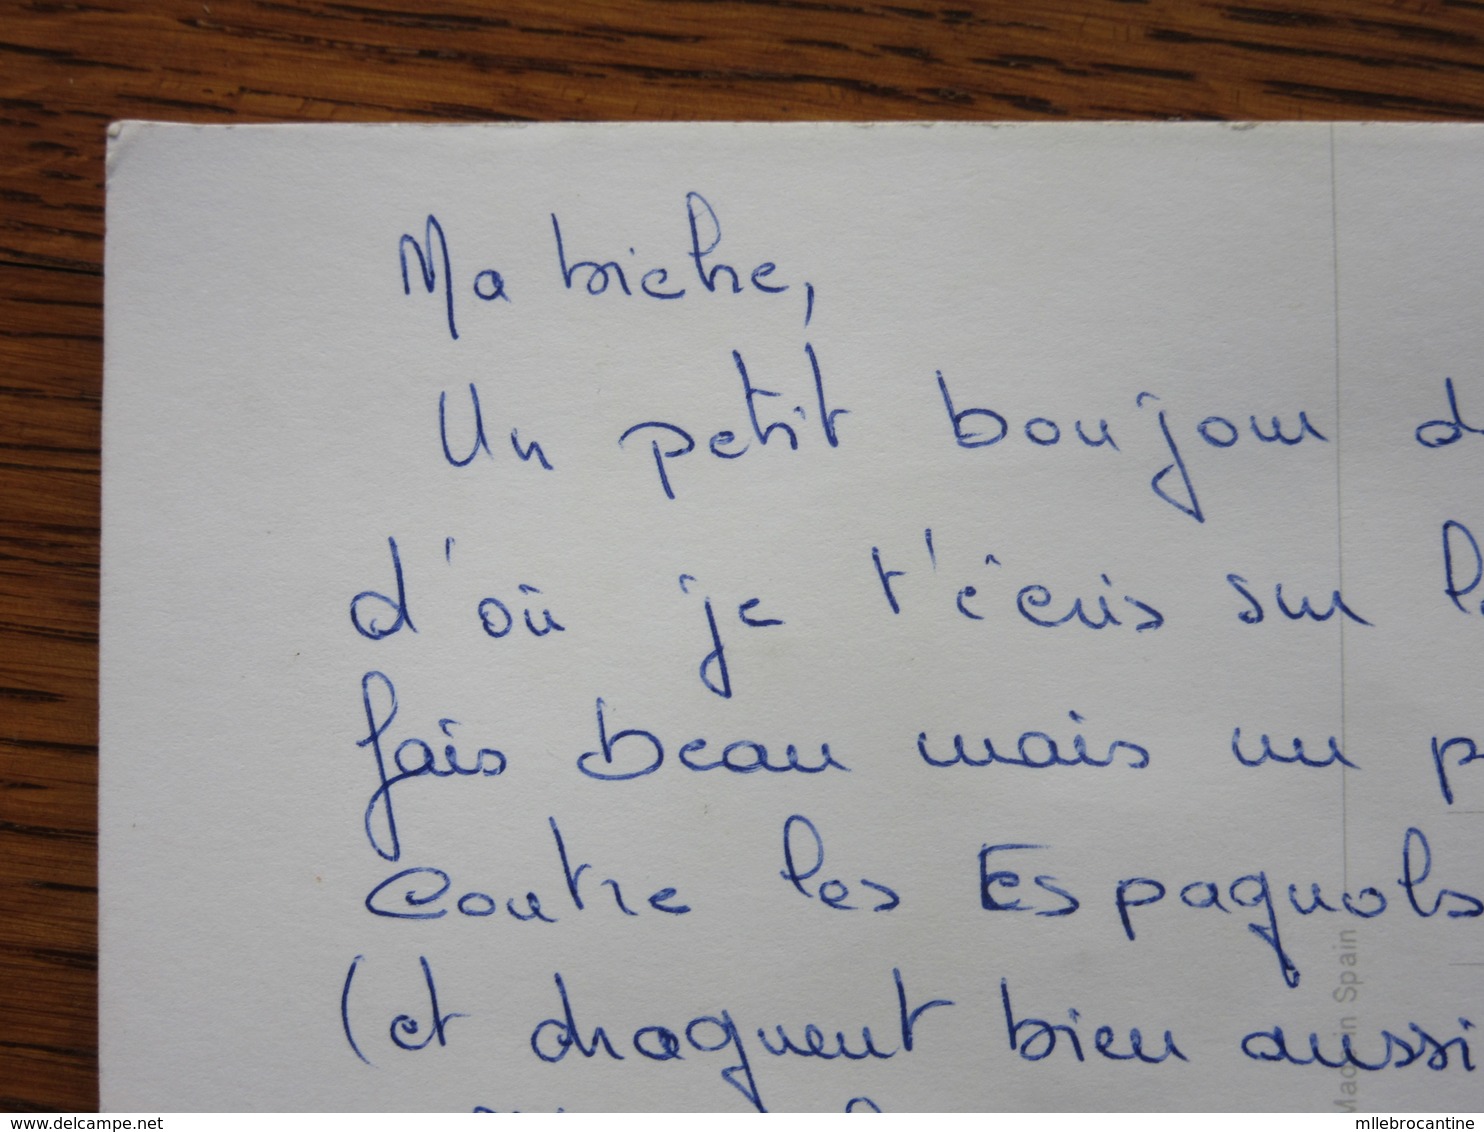 Ma biche,
Un petit bonjour
d'où je t'écris sur
fais beau mais un
contre les Espagnols
(et draguent bien aussi
Made in Spain
www.delcampe.net
mllebrocantine